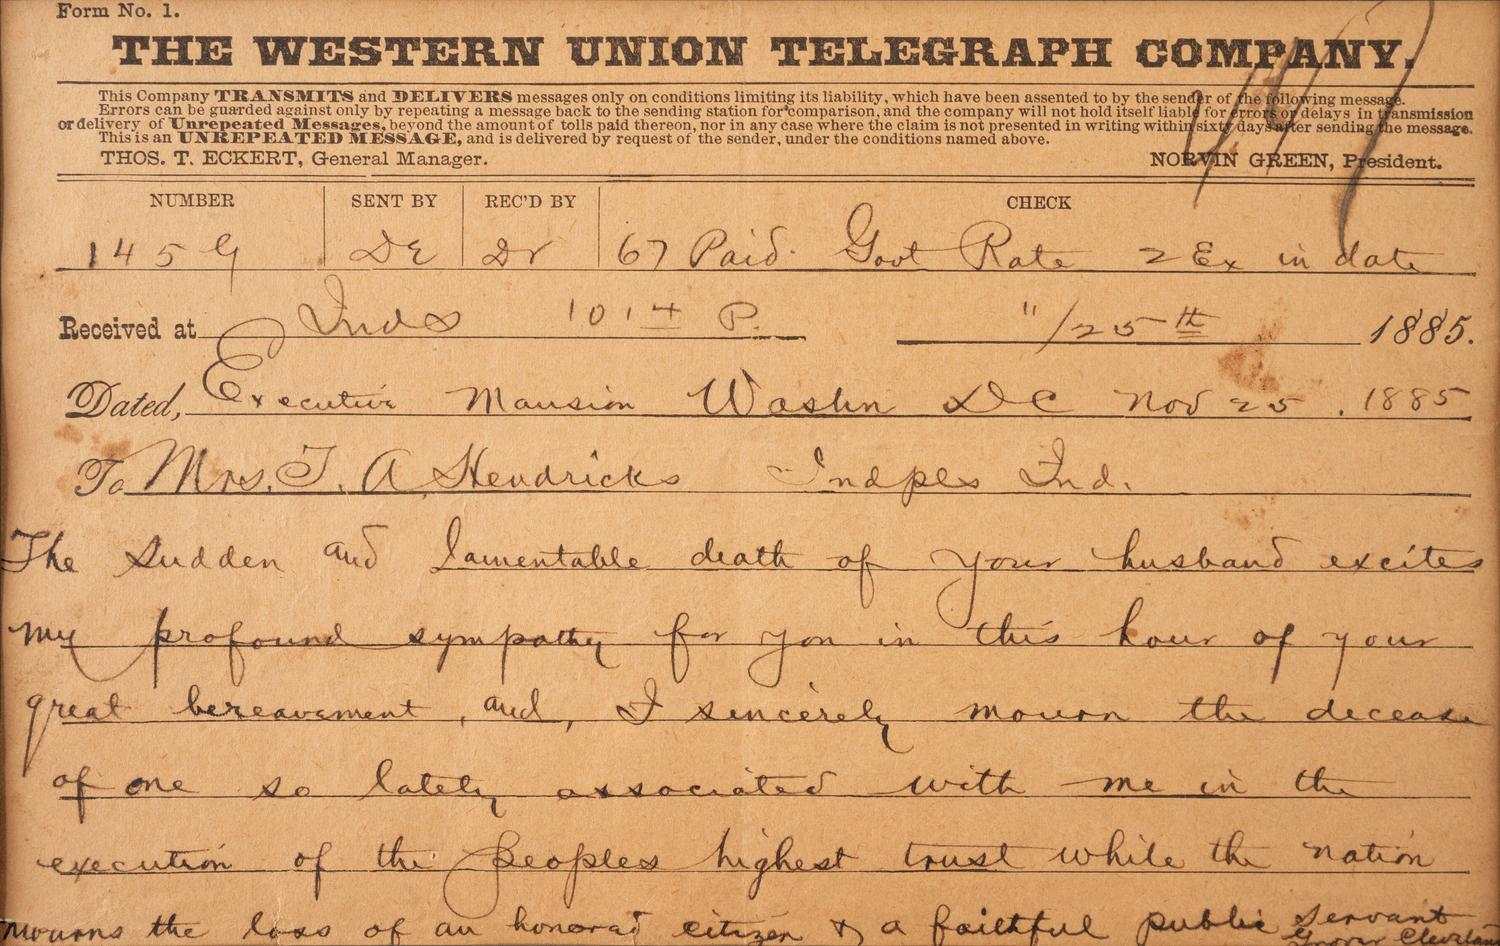 Form No. 1.
THE WESTERN UNION TELEGRAPH COMPANY.
This Company TRANSMITS and DELIVERS messages only on conditions limiting its liability, which have been assented to by the sender of the following message.
Errors can be guarded against only by repeating a message back to the sending station for comparison, and the company will not hold itself liable for errors or delays in transmission
or delivery of Unrepeated Messages, beyond the amount of tolls paid thereon, nor in any case where the claim is not presented in writing within sixty days after sending the message.
This is an UNREPEATED MESSAGE, and is delivered by request of the sender, under the conditions named above.
THOS. T. ECKERT, General Manager. NORVIN GREEN, President.
NUMBER SENT BY REC'D BY CHECK
145 G DE Dr 67 Paid. Govt Rate 2 Ex in date
Received at Inds 1014 P. 11/25th 1885.
Dated, Executive Mansion Washn DC Nov 25. 1885
To Mrs. T. A Hendricks Indpls Ind.
The Sudden and lamentable death of your husband excites
my profound sympathy for you in this hour of your
great bereavement, and, I sincerely mourn the decease
of one so lately associated with me in the
execution of the peoples highest trust while the nation
mourns the loss of an honored citizen & a faithful public Servant
Grover Cleveland